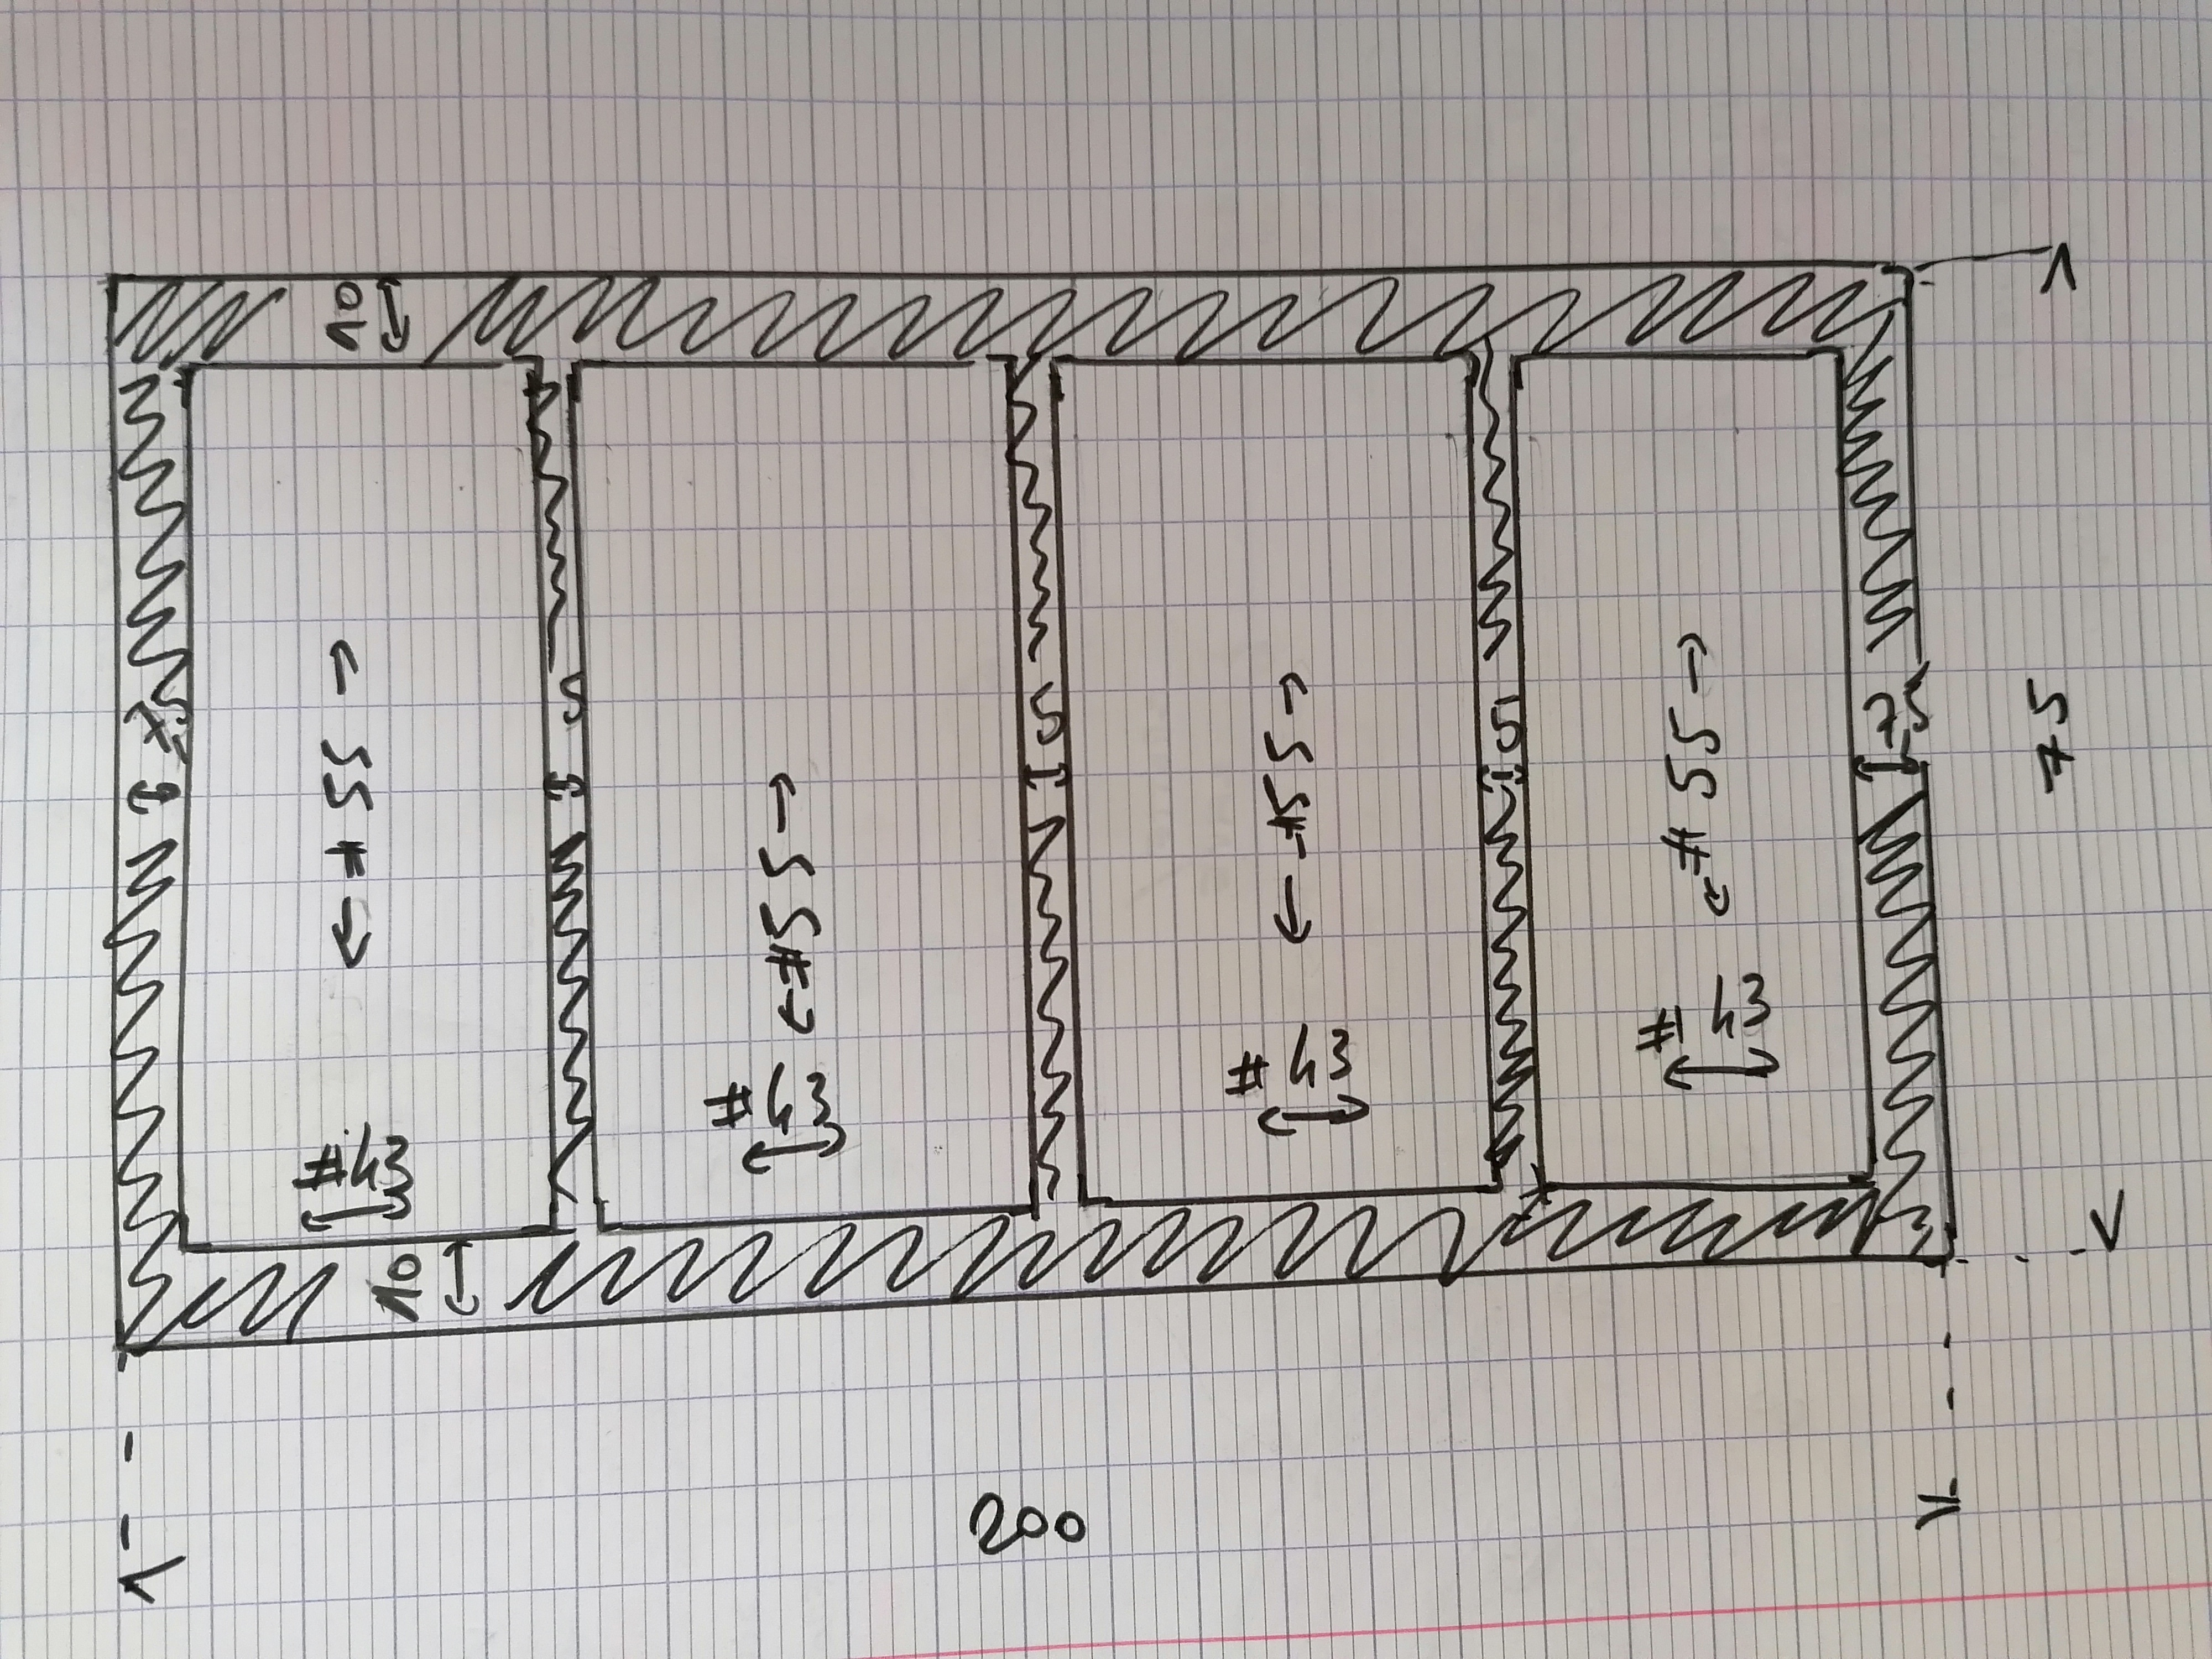 10
7,5
# 55
5
# 55
5
# 55
5
# 55
7,5
75
# 43
# 43
# 43
# 43
10
200